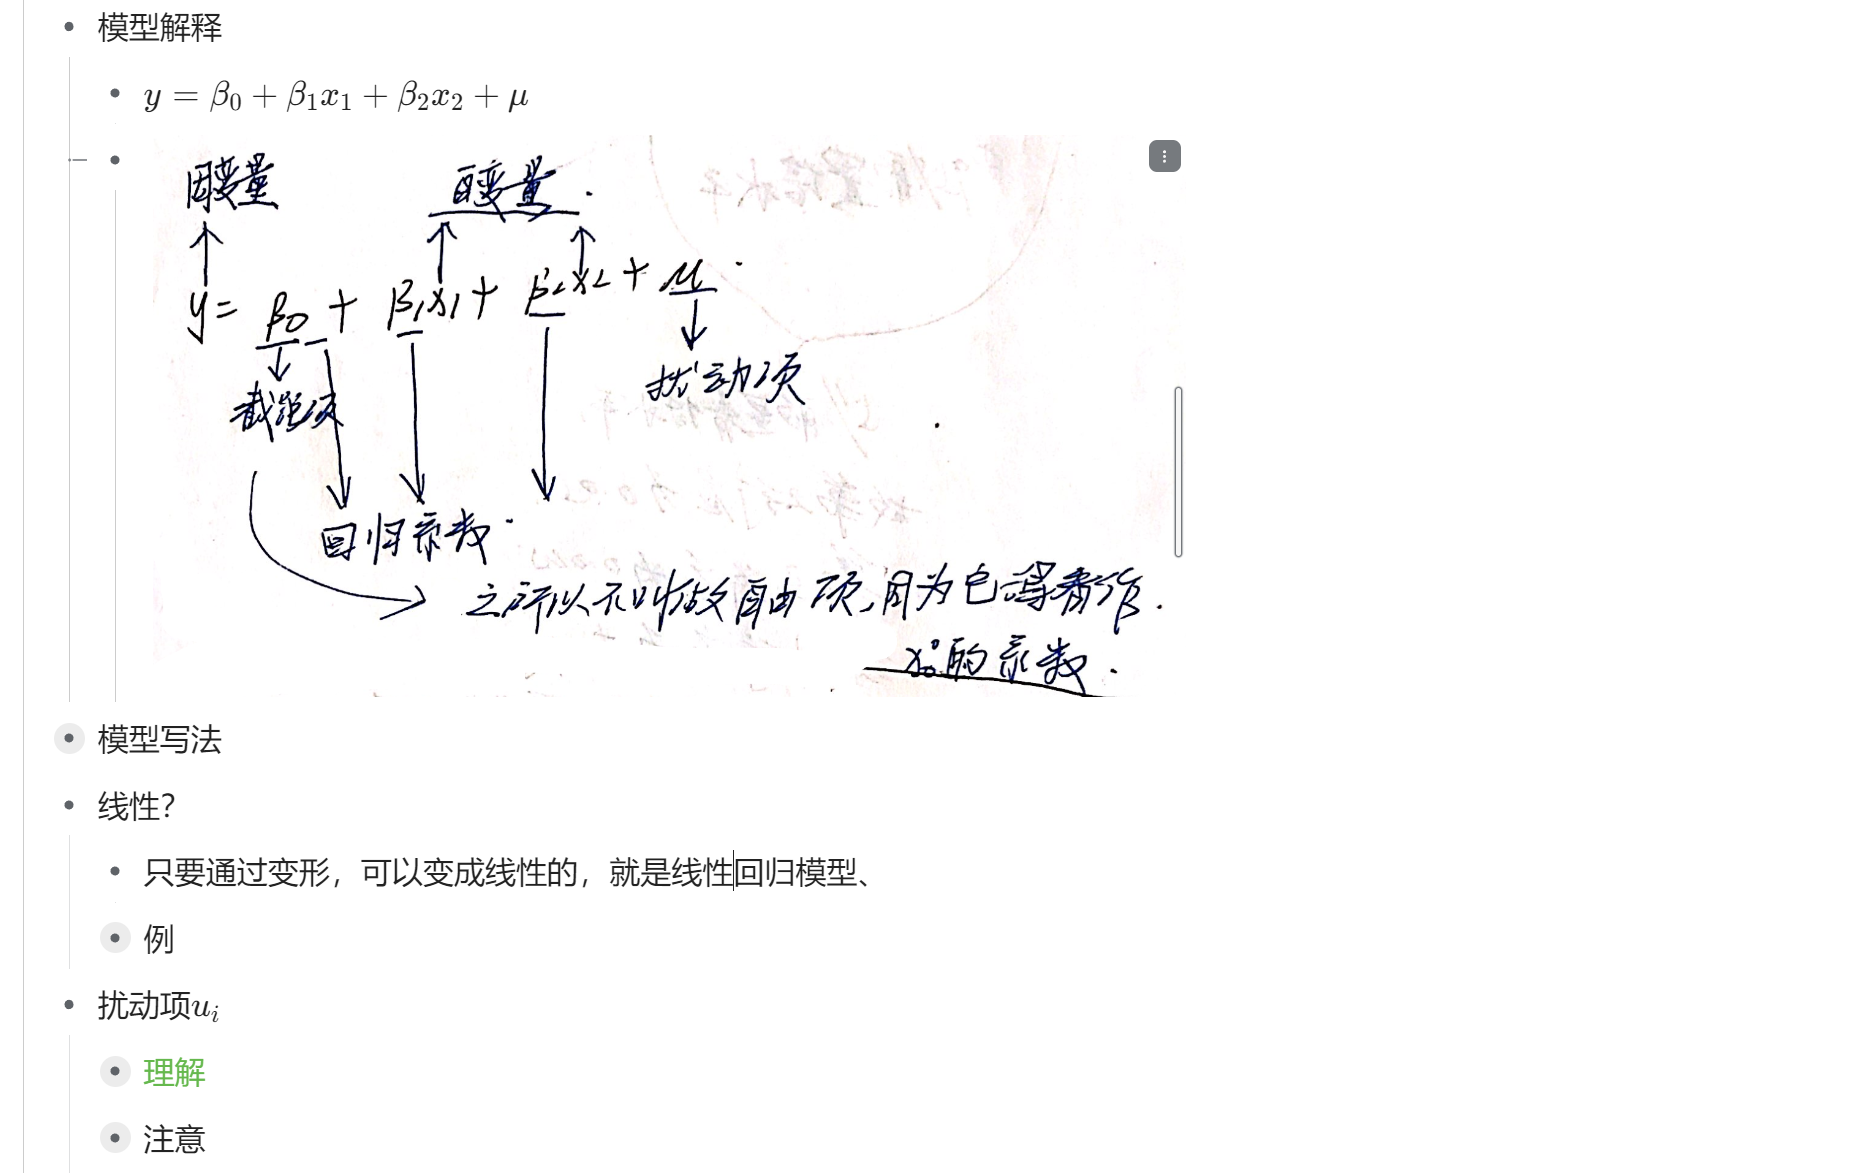 模型解释
y = β₀ + β₁x₁ + β₂x₂ + μ
因变量 自变量.
y = β0 + β1x1 + β2x2 + μ.
扰动项
截距项
回归系数.
之所以不叫做自由项,因为它得看作.
的系数.
模型写法
线性?
只要通过变形，可以变成线性的，就是线性回归模型、
例
扰动项uᵢ
理解
注意